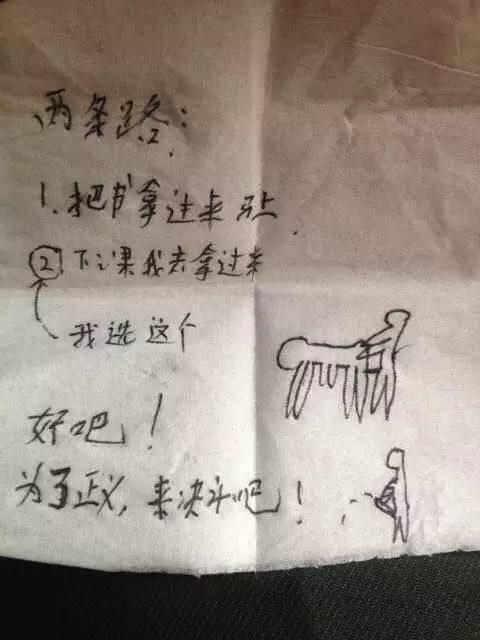 两条路：
1.把书拿过来 马上
②.下课我去拿过来
我选这个
好吧！
为了正义，来决斗吧！